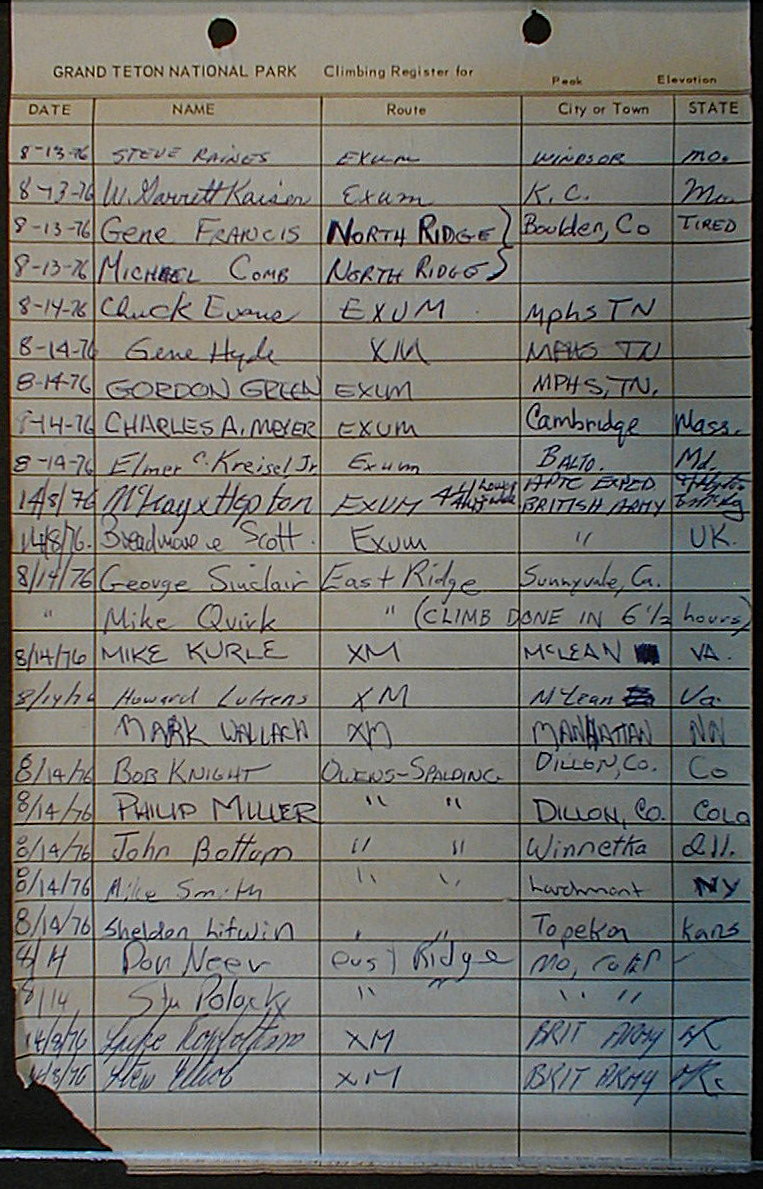 GRAND TETON NATIONAL PARK Climbing Register for Peak Elevation
DATE NAME Route City or Town STATE
8-13-76 STEVE RAINES EXUM WINDSOR MO.
8-13-76 W. Garrett Kaiser Exum K.C. Mo.
8-13-76 Gene FRANCIS NORTH RIDGE } Boulder, Co TIRED
8-13-76 MICHAEL COMB NORTH RIDGE }
8-14-76 Chuck Evans EXUM Mphs TN
8-14-76 Gene Hyde XM MPHS TN
8-14-76 GORDON GREEN EXUM MPHS, TN.
8-14-76 CHARLES A. MEYER EXUM Cambridge Mass.
8-14-76 Elmer C. Kreisel Jr Exum BALTO. Md.
14/8/76 McKay x Hepton EXUM APTC EXPED
BRITISH ARMY
14/8/76. Scott. Exum " UK.
8/14/76 George Sinclair East Ridge Sunnyvale, Ca.
" Mike Quirk " (CLIMB DONE IN 6 1/2 hours)
8/14/76 MIKE KURLE XM McLEAN VA.
8/14/76 Howard Lutrens XM McLean Va.
MARK WALLACH XM MANHATTAN NN
8/14/76 BOB KNIGHT OWENS-SPALDING DILLON, CO. Co
8/14/76 PHILIP MILLER " " DILLON, CO. COLO
8/14/76 John Bottom " " Winnetka Ill.
8/14/76 Mike Smith " " Larchmont NY
8/14/76 Sheldon Litwin " " Topeka Kans
8/14 Don Neer East Ridge Mo,
8/14 Stu Polack " " "
14/8/76 XM BRIT ARMY UK
14/8/76 Stew Elliot XM BRIT ARMY UK.